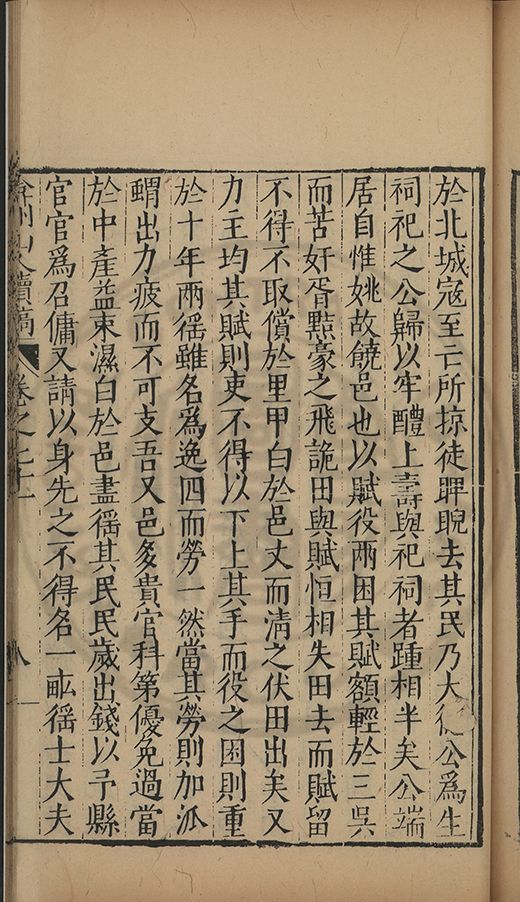 於北城寇至亡所掠徒睥睨去其民乃大 公爲生
祠祀之公歸以牢醴上壽與祀祠者踵相半矣公端
居自惟姚故饒邑也以賦役兩困其賦額輕於三吳
而苦奸胥黠豪之飛詭田與賦恒相失田去而賦留
不得不取償於里甲白於邑丈而淸之伏田出矣又
力主均其賦則吏不得以下上其手而役之困則重
於十年兩徭雖名爲逸四而勞一然當其勞則加派
蝟出力疲而不可支吾又邑多貴官科第優免過當
於中產益束濕白於邑盡徭其民民歲出錢以予縣
官官爲召傭又請以身先之不得名一畝徭士大夫
弇州山人續稿 卷之七十二 八